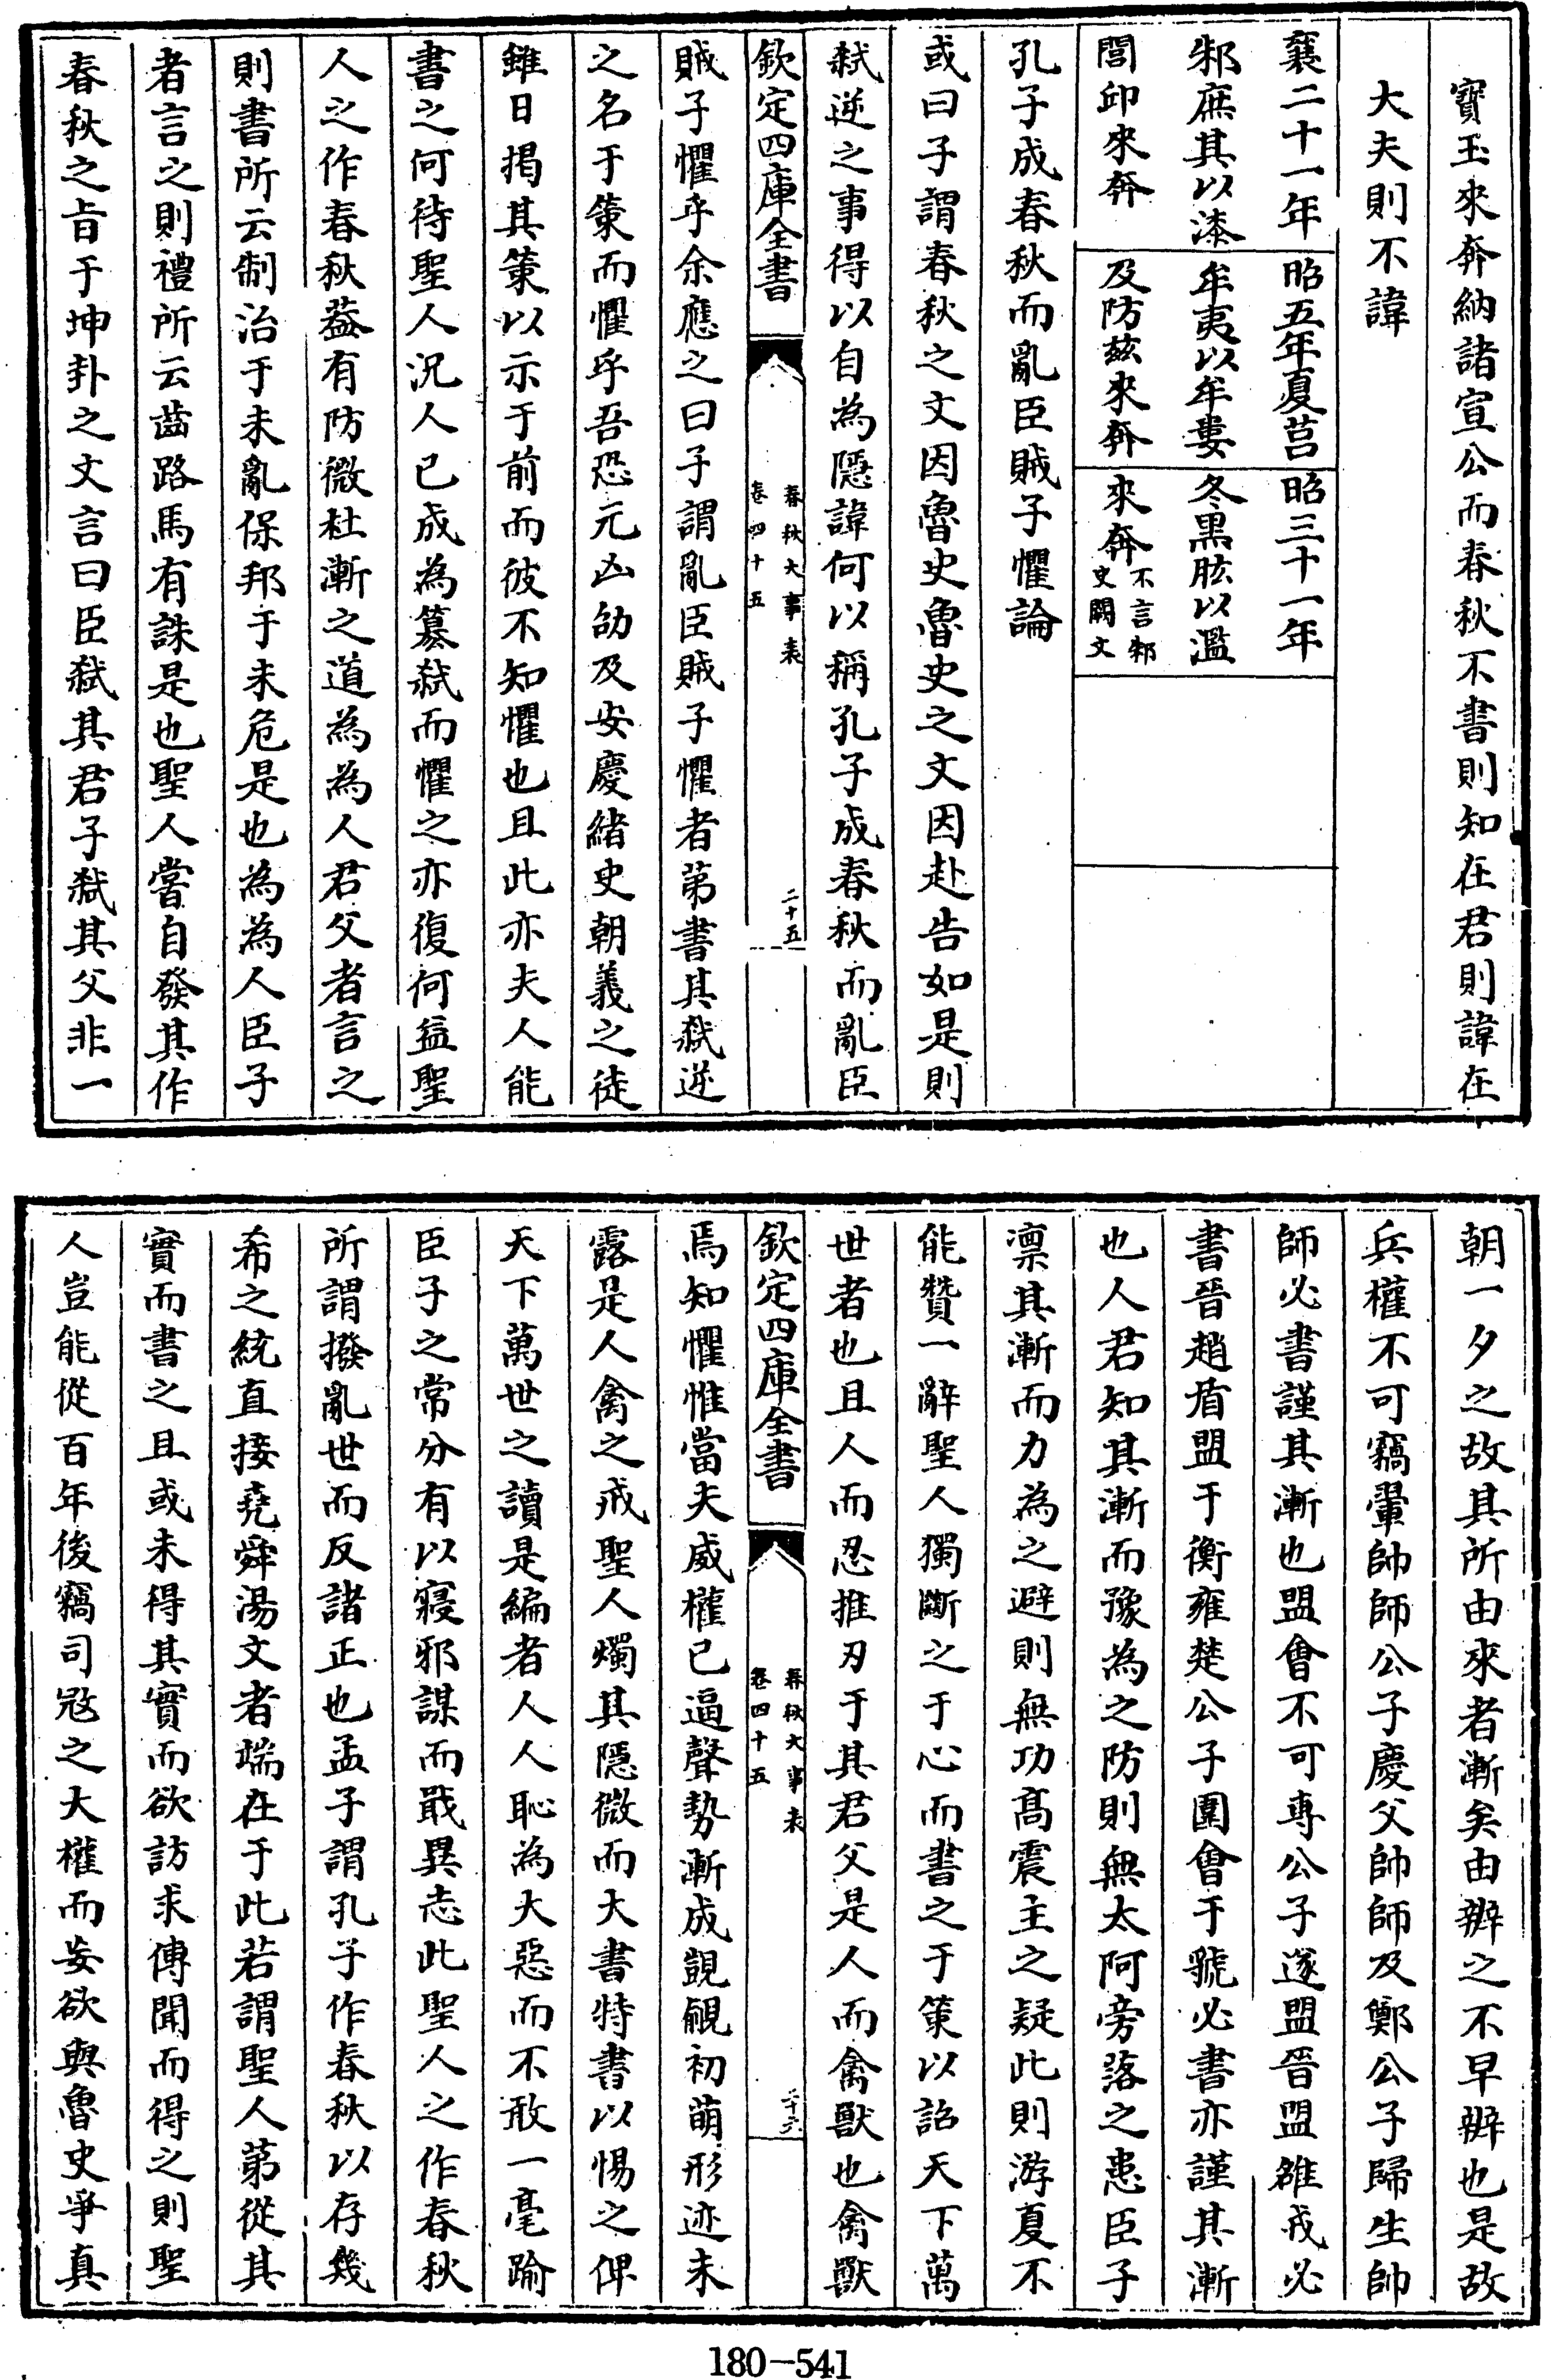 寶玉來奔納諸宣公而春秋不書則知在君則諱在
大夫則不諱
襄二十一年
邾庶其以漆
閭邱來奔
昭五年夏莒
牟夷以牟婁
及防茲來奔
昭三十一年
冬黑肱以濫
來奔不言邾
史闕文
孔子成春秋而亂臣賊子懼論
或曰子謂春秋之文因魯史魯史之文因赴告如是則
弒逆之事得以自為隱諱何以稱孔子成春秋而亂臣
欽定四庫全書
春秋大事表
卷四十五
二十五
賊子懼乎余應之曰子謂亂臣賊子懼者第書其弒逆
之名于策而懼乎吾恐元凶劭及安慶緒史朝義之徒
雖日揭其策以示于前而彼不知懼也且此亦夫人能
書之何待聖人況人已成為簒弒而懼之亦復何益聖
人之作春秋葢有防微杜漸之道為為人君父者言之
則書所云制治于未亂保邦于未危是也為為人臣子
者言之則禮所云齒路馬有誅是也聖人嘗自發其作
春秋之旨于坤卦之文言曰臣弒其君子弒其父非一
朝一夕之故其所由來者漸矣由辨之不早辨也是故
兵權不可竊翬帥師公子慶父帥師及鄭公子歸生帥
師必書謹其漸也盟會不可專公子遂盟晉盟雒戎必
書晉趙盾盟于衡雍楚公子圍會于虢必書亦謹其漸
也人君知其漸而豫為之防則無太阿旁落之患臣子
凛其漸而力為之避則無功髙震主之疑此則游夏不
能贊一辭聖人獨斷之于心而書之于策以詔天下萬
世者也且人而忍推刃于其君父是人而禽獸也禽獸
欽定四庫全書
春秋大事表
卷四十五
二十六
焉知懼惟當夫威權已逼聲勢漸成覬覦初萌形迹未
露是人禽之戒聖人燭其隱微而大書特書以惕之俾
天下萬世之讀是編者人人恥為大惡而不敢一毫踰
臣子之常分有以寢邪謀而戢異志此聖人之作春秋
所謂撥亂世而反諸正也孟子謂孔子作春秋以存幾
希之統直接堯舜湯文者端在于此若謂聖人第從其
實而書之且或未得其實而欲訪求傳聞而得之則聖
人豈能從百年後竊司冦之大權而妄欲與魯史爭真
180-541